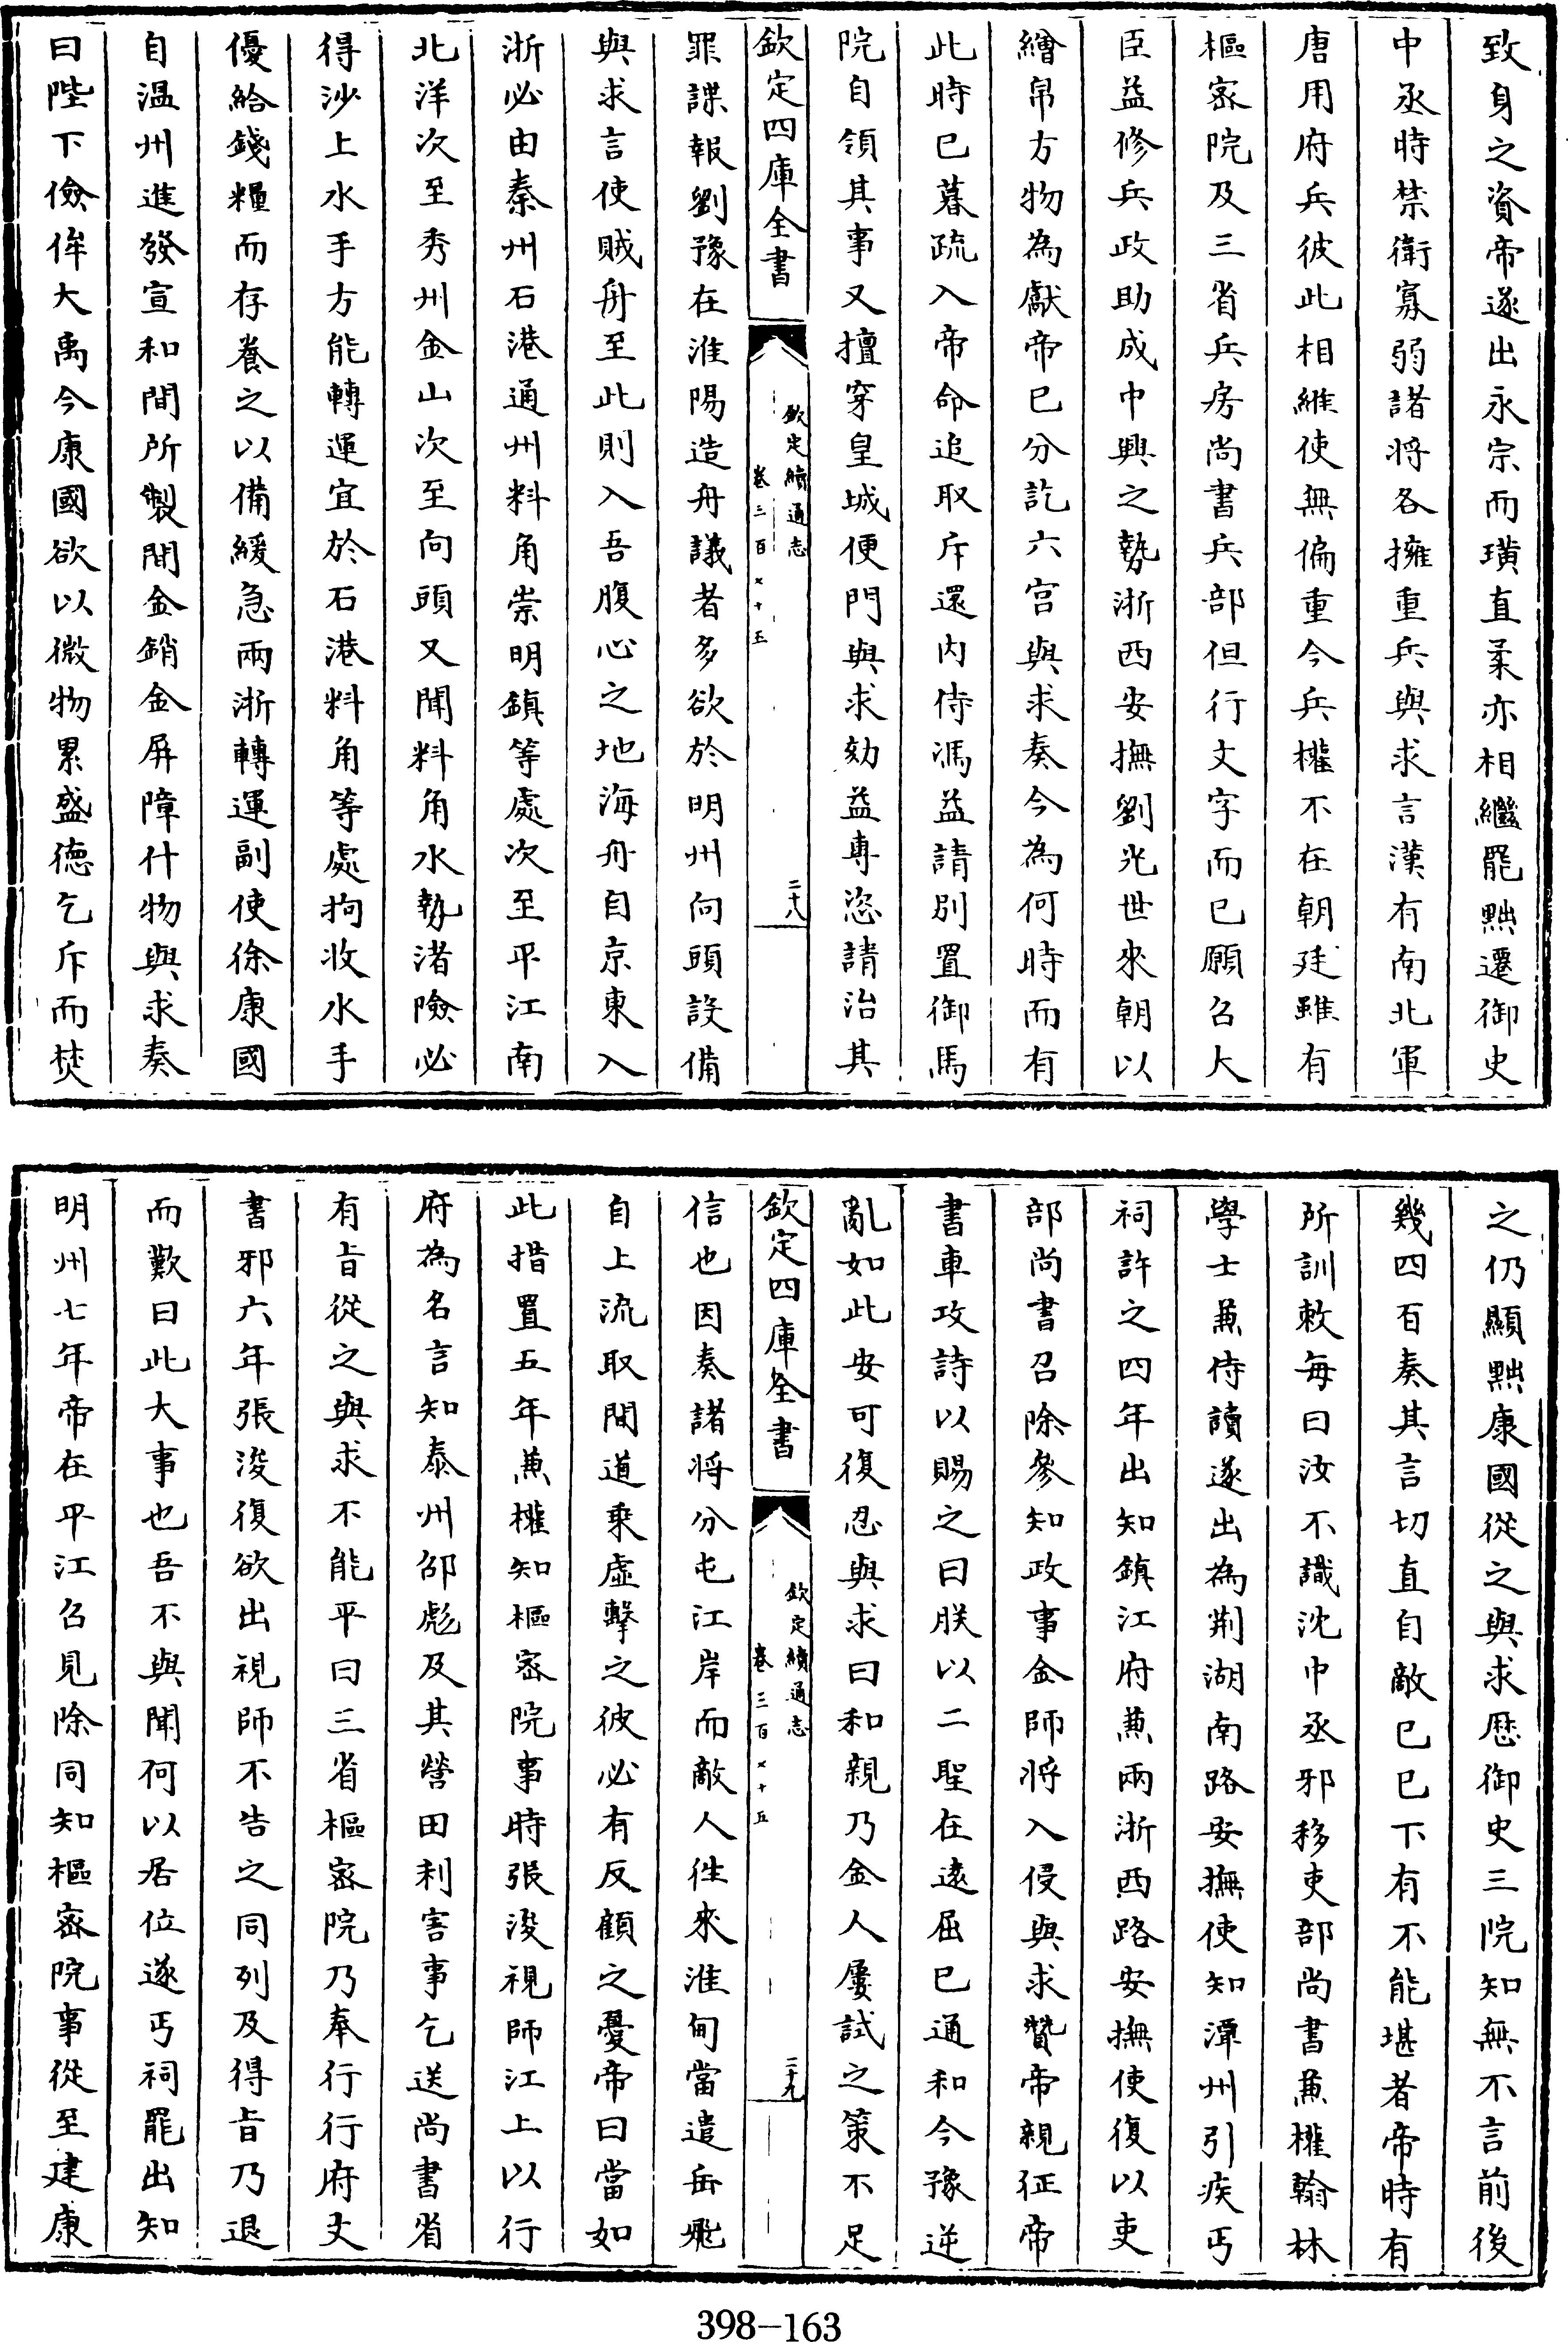 致身之資帝遂出永宗而璜直柔亦相繼罷黜遷御史
中丞時禁衛寡弱諸將各擁重兵與求言漢有南北軍
唐用府兵彼此相維使無偏重今兵權不在朝廷雖有
樞宻院及三省兵房尚書兵部但行文字而已願召大
臣益修兵政助成中興之勢浙西安撫劉光世來朝以
繒帛方物為獻帝已分訖六宫與求奏今為何時而有
此時已暮疏入帝命追取斥還内侍馮益請別置御馬
院自領其事又擅穿皇城便門與求劾益專恣請治其
欽定四庫全書
欽定續通志
卷三百七十五
二十八
罪諜報劉豫在淮陽造舟議者多欲於明州向頭設備
與求言使賊舟至此則入吾腹心之地海舟自京東入
浙必由秦州石港通州料角崇明鎮等處次至平江南
北洋次至秀州金山次至向頭又聞料角水勢渚險必
得沙上水手方能轉運宜於石港料角等處拘收水手
優給錢糧而存養之以備緩急兩浙轉運副使徐康國
自溫州進發宣和間所製間金銷金屏障什物與求奏
曰陛下儉侔大禹今康國欲以微物累盛德乞斥而焚
之仍顯黜康國從之與求歷御史三院知無不言前後
幾四百奏其言切直自敵已已下有不能堪者帝時有
所訓敕每曰汝不識沈中丞邪移吏部尚書兼權翰林
學士兼侍讀遂出為荆湖南路安撫使知潭州引疾丐
祠許之四年出知鎮江府兼兩浙西路安撫使復以吏
部尚書召除參知政事金師將入侵與求贊帝親征帝
書車攻詩以賜之曰朕以二聖在逺屈已通和今豫逆
亂如此安可復忍與求曰和親乃金人屢試之策不足
欽定四庫全書
欽定續通志
卷三百七十五
二十九
信也因奏諸將分屯江岸而敵人徃來淮甸當遣岳飛
自上流取間道乘虛擊之彼必有反顧之憂帝曰當如
此措置五年兼權知樞宻院事時張浚視師江上以行
府為名言知泰州邵彪及其營田利害事乞送尚書省
有旨從之與求不能平曰三省樞宻院乃奉行行府文
書邪六年張浚復欲出視師不告之同列及得旨乃退
而歎曰此大事也吾不與聞何以居位遂丐祠罷出知
明州七年帝在平江召見除同知樞宻院事從至建康
398-163